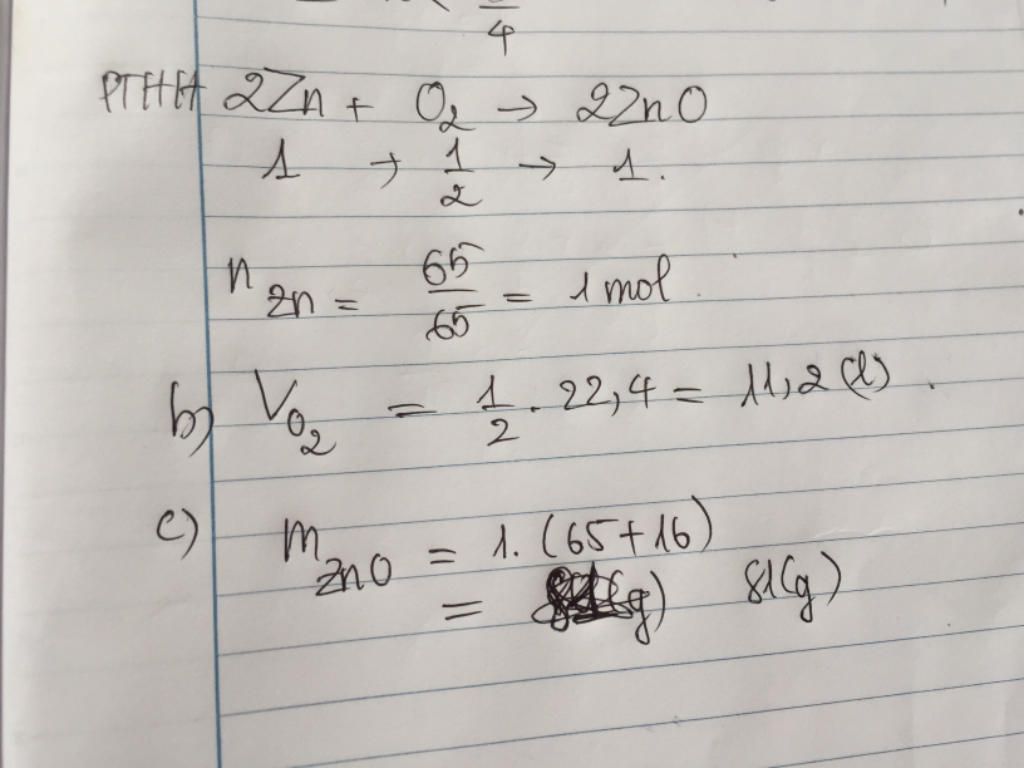 4
PTHH 2Zn + O2 → 2ZnO
1 → 1/2 → 1.
n Zn = 65/65 = 1 mol
b) VO2 = 1/2 . 22,4 = 11,2 (l).
c) mZnO = 1. (65+16)
= (g) 81(g)